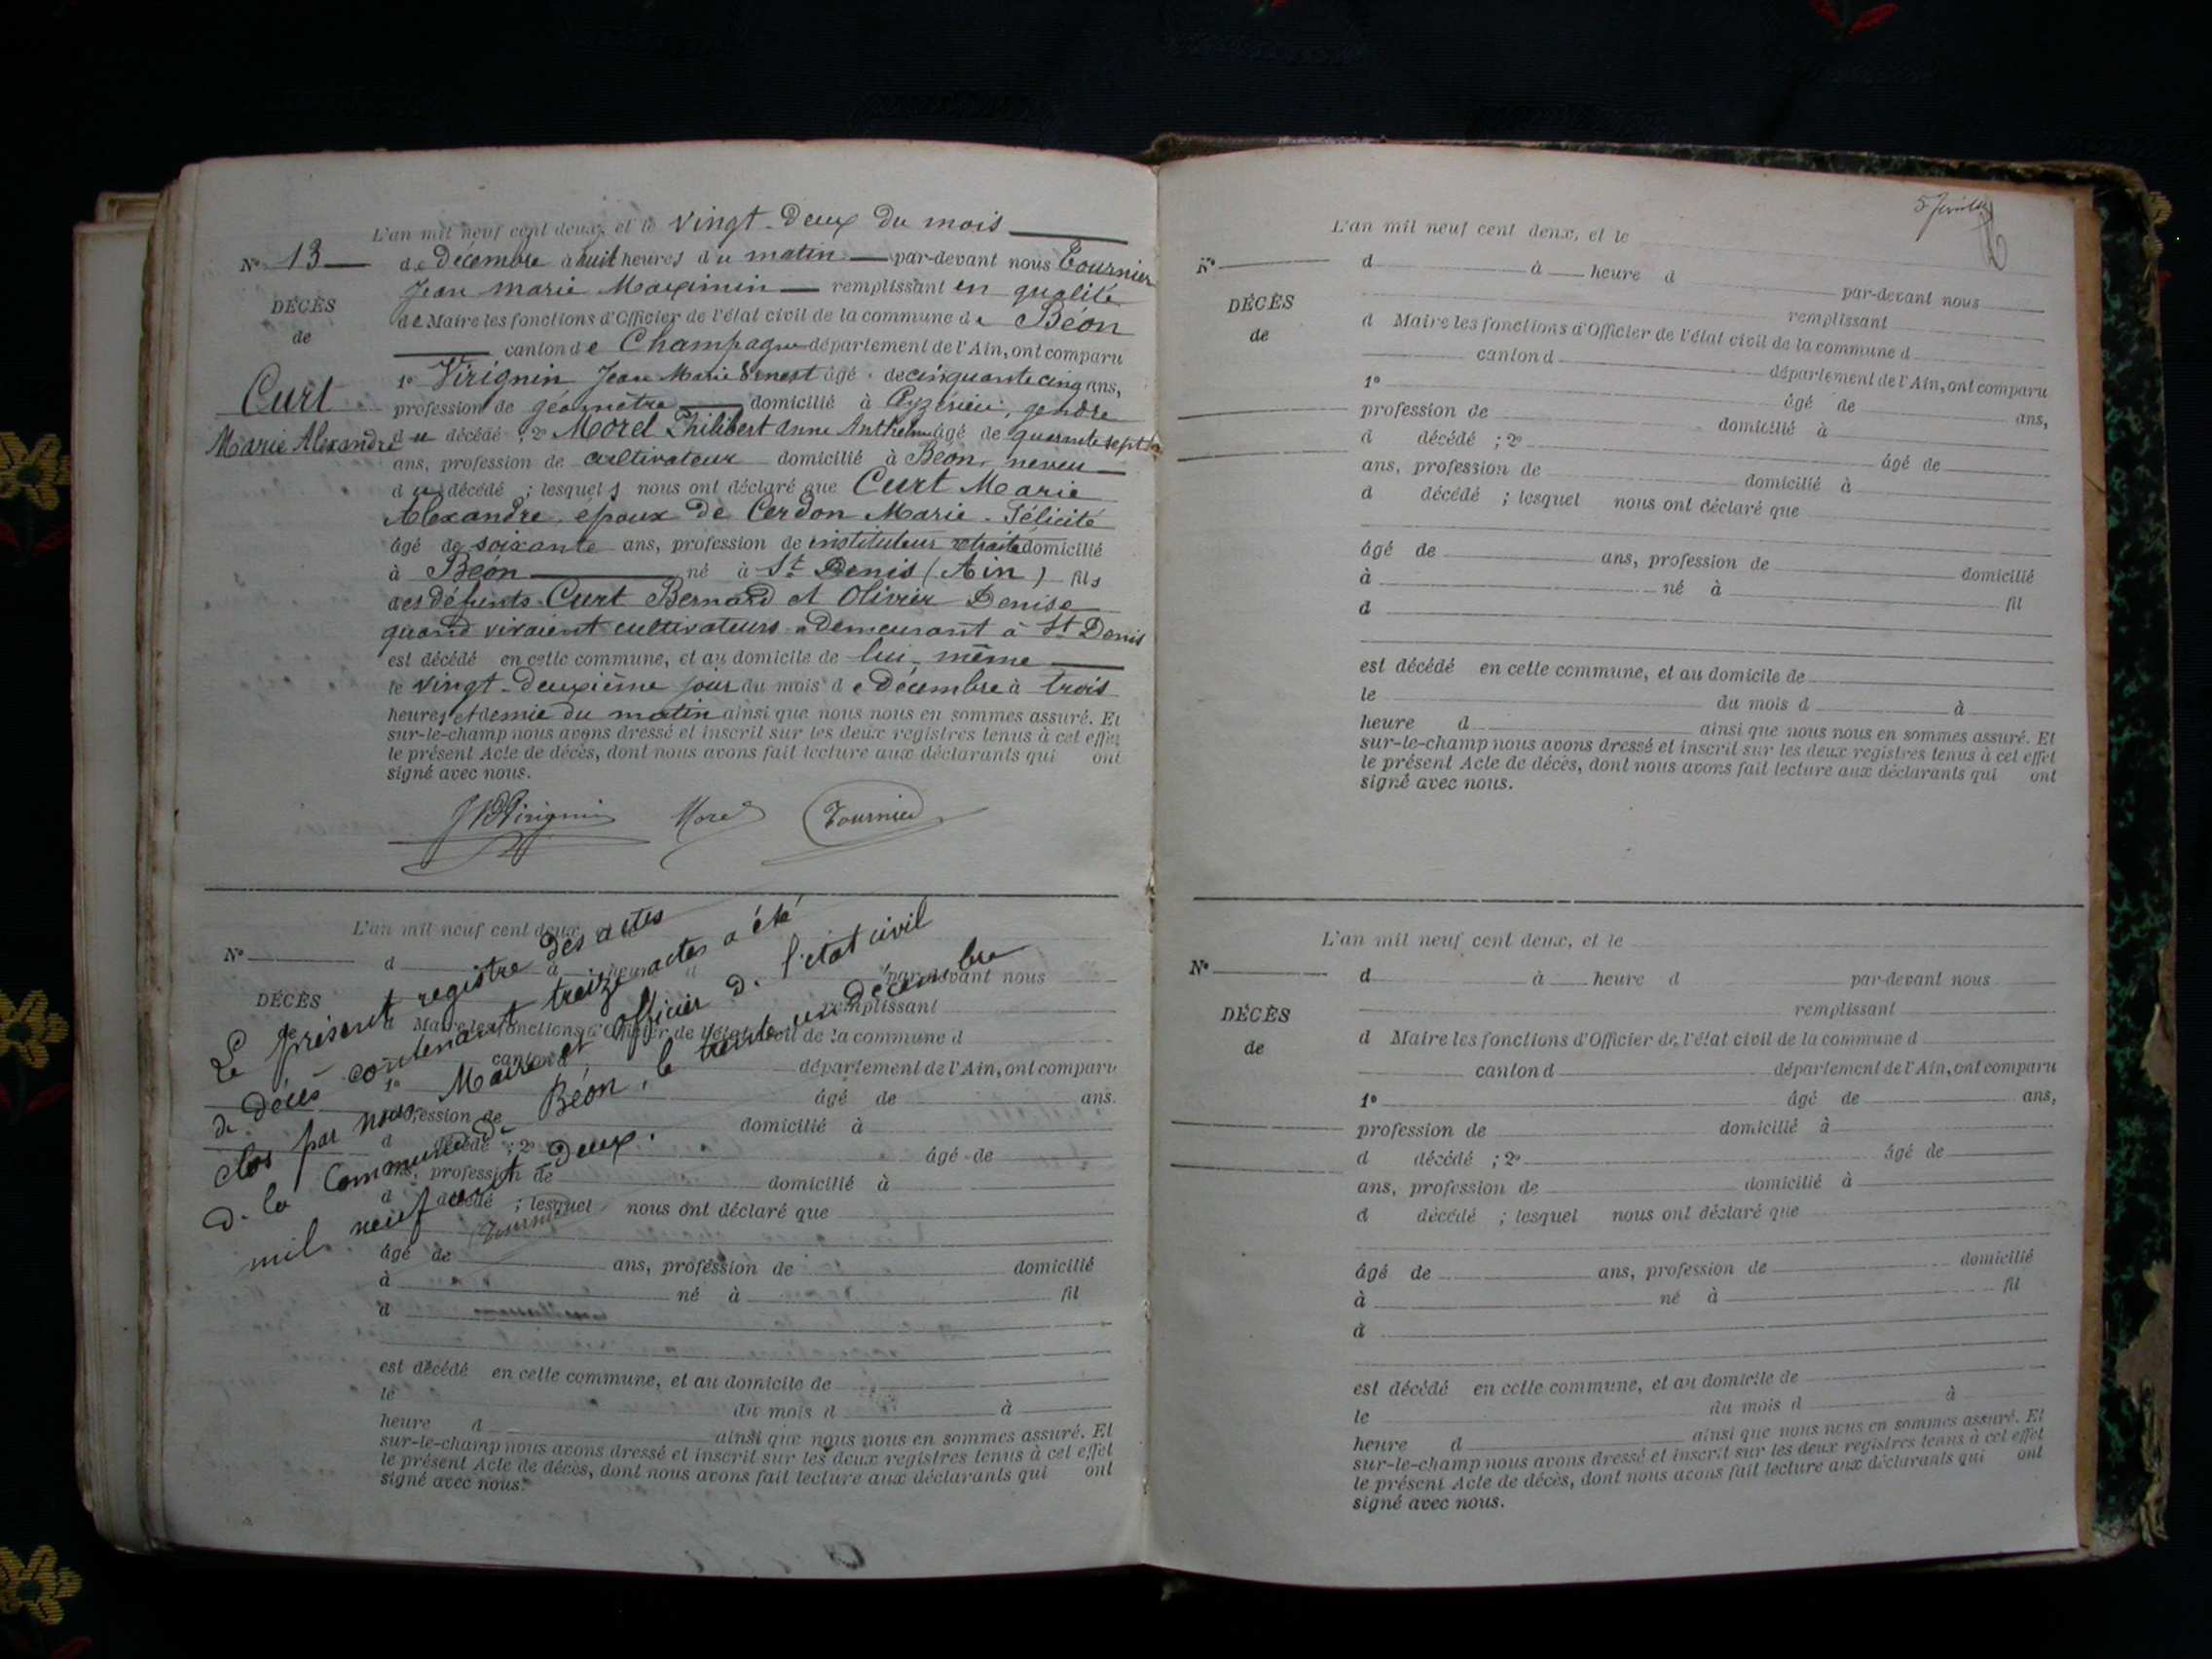 L'an mil neuf cent deux, et le vingt-deux du mois
N° 13 de Décembre à huit heures du matin par-devant nous Tournier
Jean Marie Maximin remplissant en qualité
DÉCÈS
de Maire les fonctions d'Officier de l'état civil de la commune de Béon
de
canton de Champagne département de l'Ain, ont comparu
1° Virignin Jean Marie Ernest âgé de cinquante cinq ans,
Curt
profession de géomètre domicilié à Ayzérieu, gendre
Marie Alexandre
du décédé ; 2° Morel Philibert Anne Anthelme âgé de quarante sept
ans, profession de cultivateur domicilié à Béon, neveu
du décédé ; lesquels nous ont déclaré que Curt Marie
Alexandre, époux de Cerdon Marie-Félicité
âgé de soixante ans, profession de instituteur retraité domicilié
à Béon né à St Denis (Ain) fils
des défunts Curt Bernard et Olivier Denise
quand vivaient cultivateurs demeurant à St Denis
est décédé en cette commune, et au domicile de lui-même
le vingt-deuxième jour du mois de Décembre à trois
heures et demie du matin ainsi que nous nous en sommes assuré. Et
sur-le-champ nous avons dressé et inscrit sur les deux registres tenus à cet effet
le présent Acte de décès, dont nous avons fait lecture aux déclarants qui ont
signé avec nous.
Virignin Morel Tournier
L'an mil neuf cent deux,
N° d à heure d par-devant nous
DÉCÈS
remplissant
d Maire les fonctions d'Officier de l'état civil de la commune d
canton d département de l'Ain, ont comparu
1° âgé de ans.
profession de domicilié à
d décédé ; 2° âgé de
ans, profession de domicilié à
d décédé ; lesquel nous ont déclaré que
âgé de ans, profession de domicilié
à né à fil
d
est décédé en cette commune, et au domicile de
le du mois d à
heure d ainsi que nous nous en sommes assuré. Et
sur-le-champ nous avons dressé et inscrit sur les deux registres tenus à cet effet
le présent Acte de décès, dont nous avons fait lecture aux déclarants qui ont
signé avec nous.
Le présent registre des actes
de décès contenant treize actes a été
clos par nous Maire et officier de l'état civil
de la Commune de Béon, le trente un décembre
mil neuf cent deux.
Tournier
5
L'an mil neuf cent deux, et le
N° d à heure d par-devant nous
DÉCÈS
remplissant
de
d Maire les fonctions d'Officier de l'état civil de la commune d
canton d département de l'Ain, ont comparu
1° âgé de ans,
profession de domicilié à
d décédé ; 2° âgé de
ans, profession de domicilié à
d décédé ; lesquel nous ont déclaré que
âgé de ans, profession de domicilié
à né à fil
d
est décédé en cette commune, et au domicile de
le du mois d à
heure d ainsi que nous nous en sommes assuré. Et
sur-le-champ nous avons dressé et inscrit sur les deux registres tenus à cet effet
le présent Acte de décès, dont nous avons fait lecture aux déclarants qui ont
signé avec nous.
L'an mil neuf cent deux, et le
N° d à heure d par-devant nous
DÉCÈS
remplissant
de
d Maire les fonctions d'Officier de l'état civil de la commune d
canton d département de l'Ain, ont comparu
1° âgé de ans,
profession de domicilié à
d décédé ; 2° âgé de
ans, profession de domicilié à
d décédé ; lesquel nous ont déclaré que
âgé de ans, profession de domicilié
à né à fil
d
est décédé en cette commune, et au domicile de
le du mois d à
heure d ainsi que nous nous en sommes assuré. Et
sur-le-champ nous avons dressé et inscrit sur les deux registres tenus à cet effet
le présent Acte de décès, dont nous avons fait lecture aux déclarants qui ont
signé avec nous.